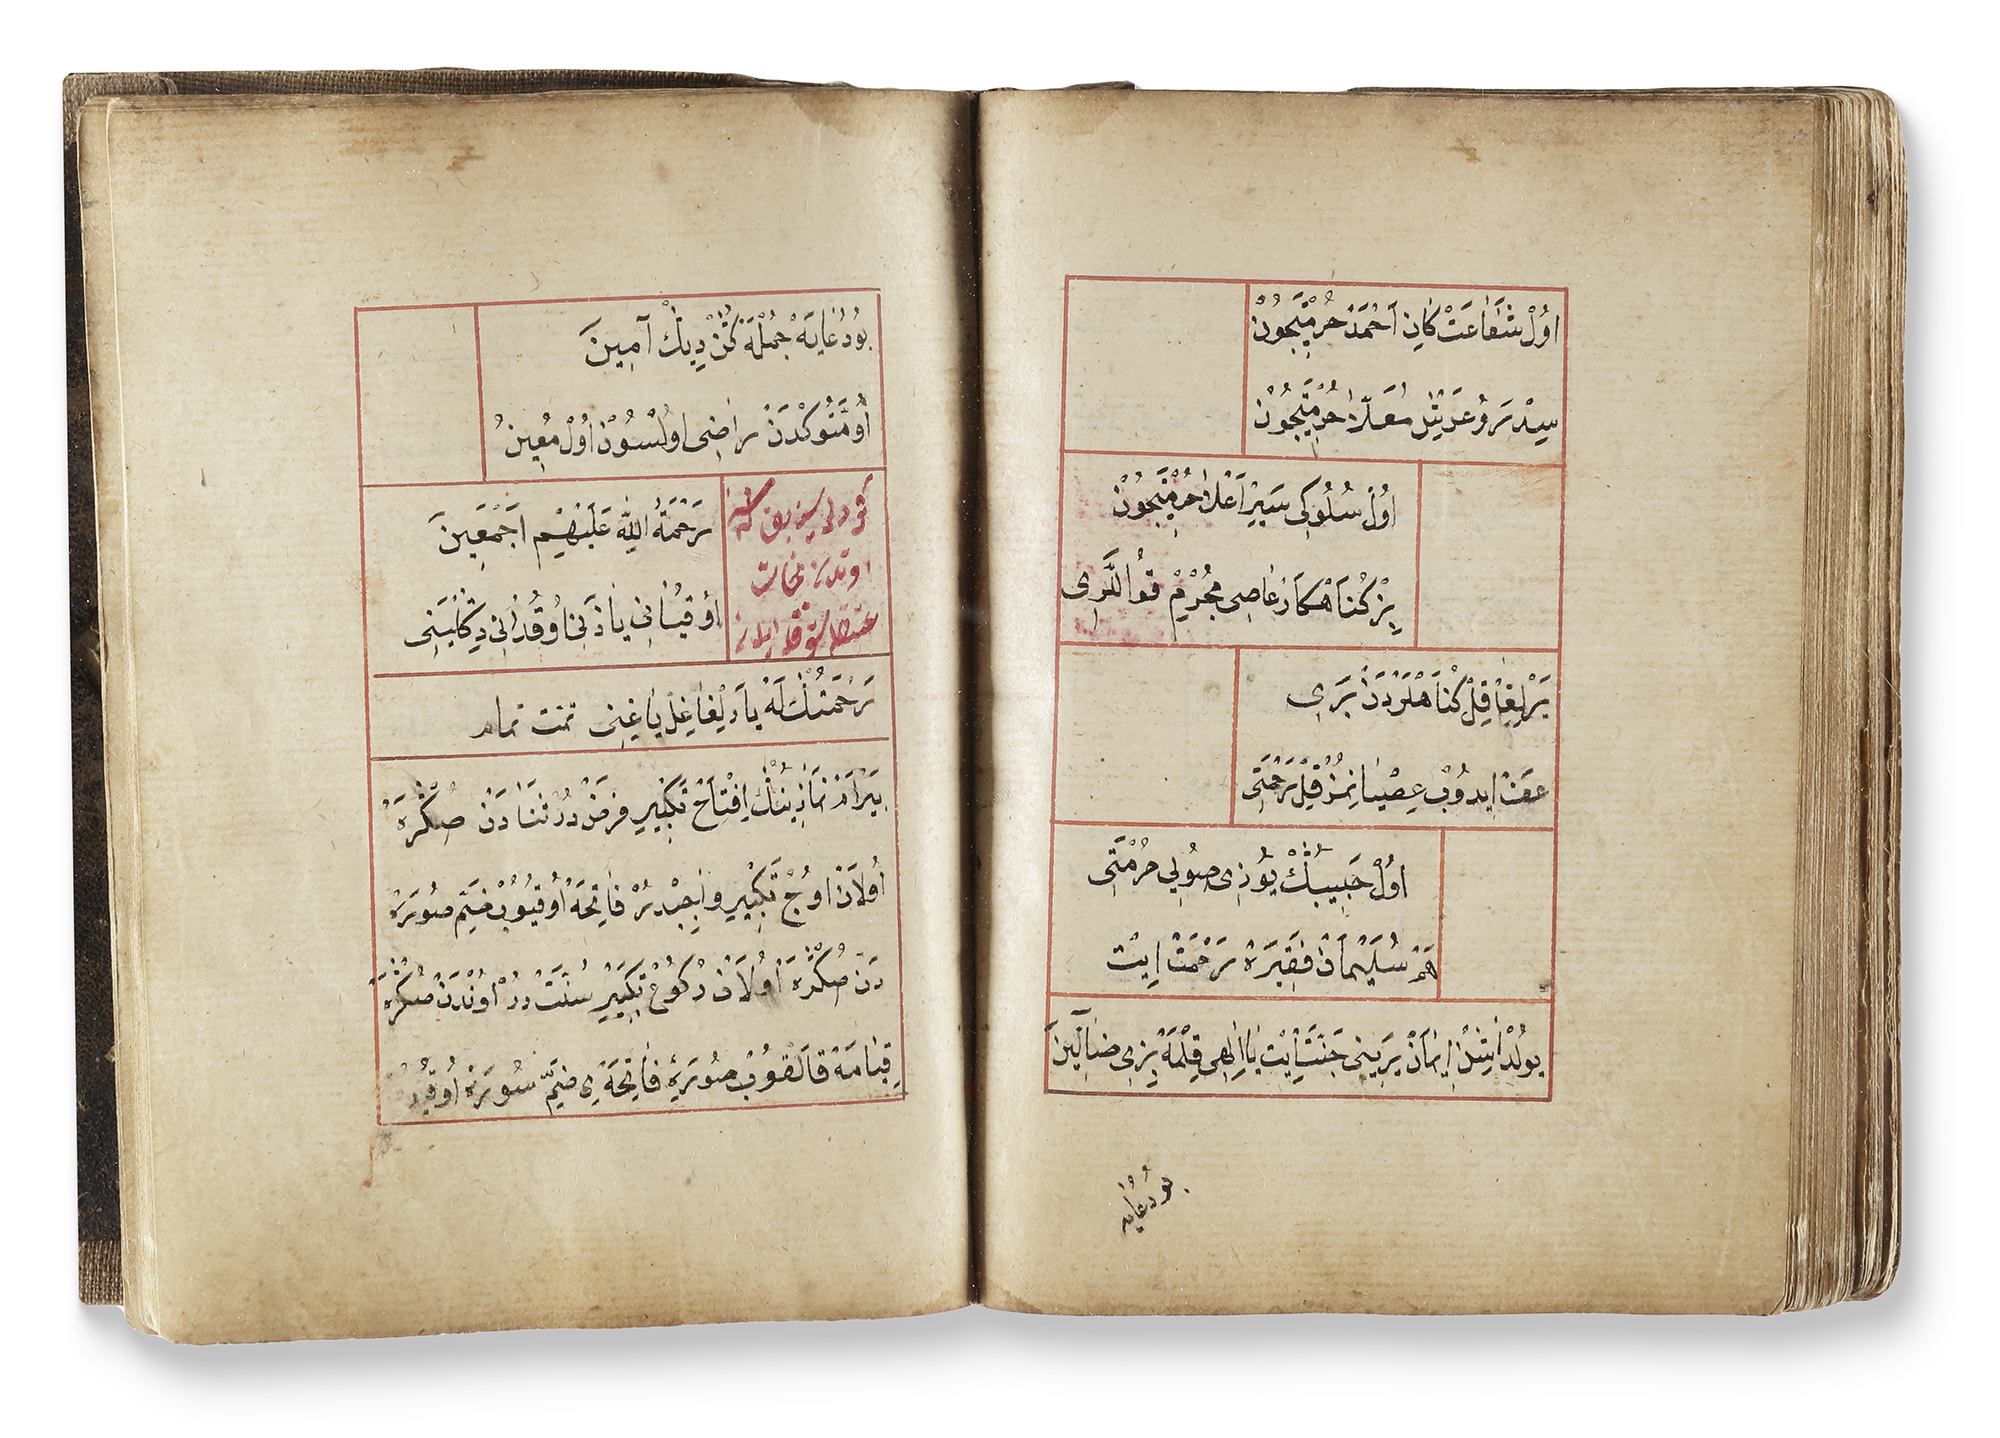 اول شفاعت كانِ احمد حرمتيچون
سدره و عرش معلا حرمتيچون
اول سلوكى سير اعلا حرمتيچون
بز كناهكار عاصى مجرم قوللرى
يرلغا قل كناهلردن برى
عفو ايدوب عصيانمز قل رحمتى
اول حبيبك يوزى صويى حرمتى
هم سليمان فقيره رحمت ايت
يولداش ايمان يرينى جنت ايت يا الهى قلمه بزى ضالين
بو دعايه
بو دعايه جمله كز ديك آمين
امتوكدن راضى اولسون اول معين
رحمة الله عليهم اجمعين
اوقيانى يازانى اوقدانى دكليانى
رحمتكله يارلغاغل يا غنى تمت تمام
بيرام نمازينك افتتاح تكبير فرضدر ثنادن صكره
اولان اوچ تكبير واجبدر فاتحه اوقيوب ضم صوره
دن صكره اولان ركوع تكبير سنتدر اوندن صكره
قيامه قالقوب صوره فاتحه ى ضم سوره اوقيوب